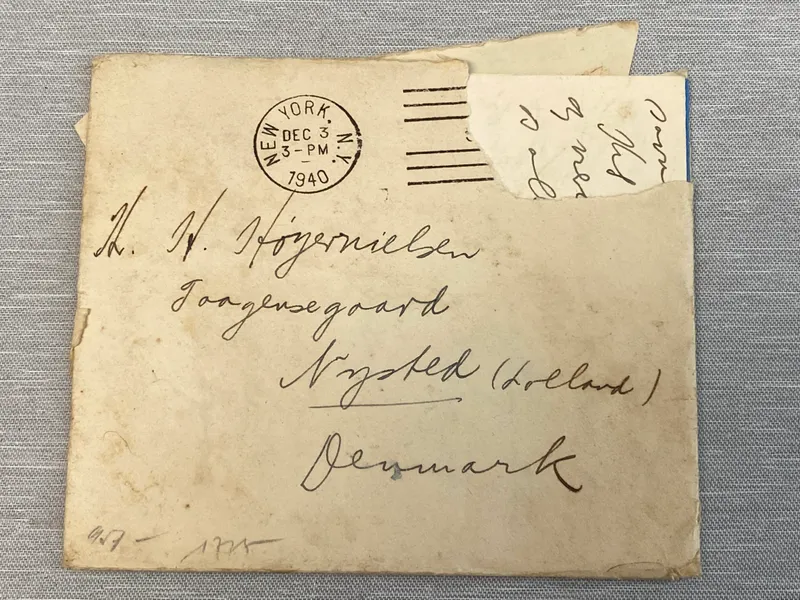 NEW YORK, N.Y.
DEC 3
3-PM
1940
H. Højernielsen
Taagensegaard
Nysted (Lolland)
Denmark